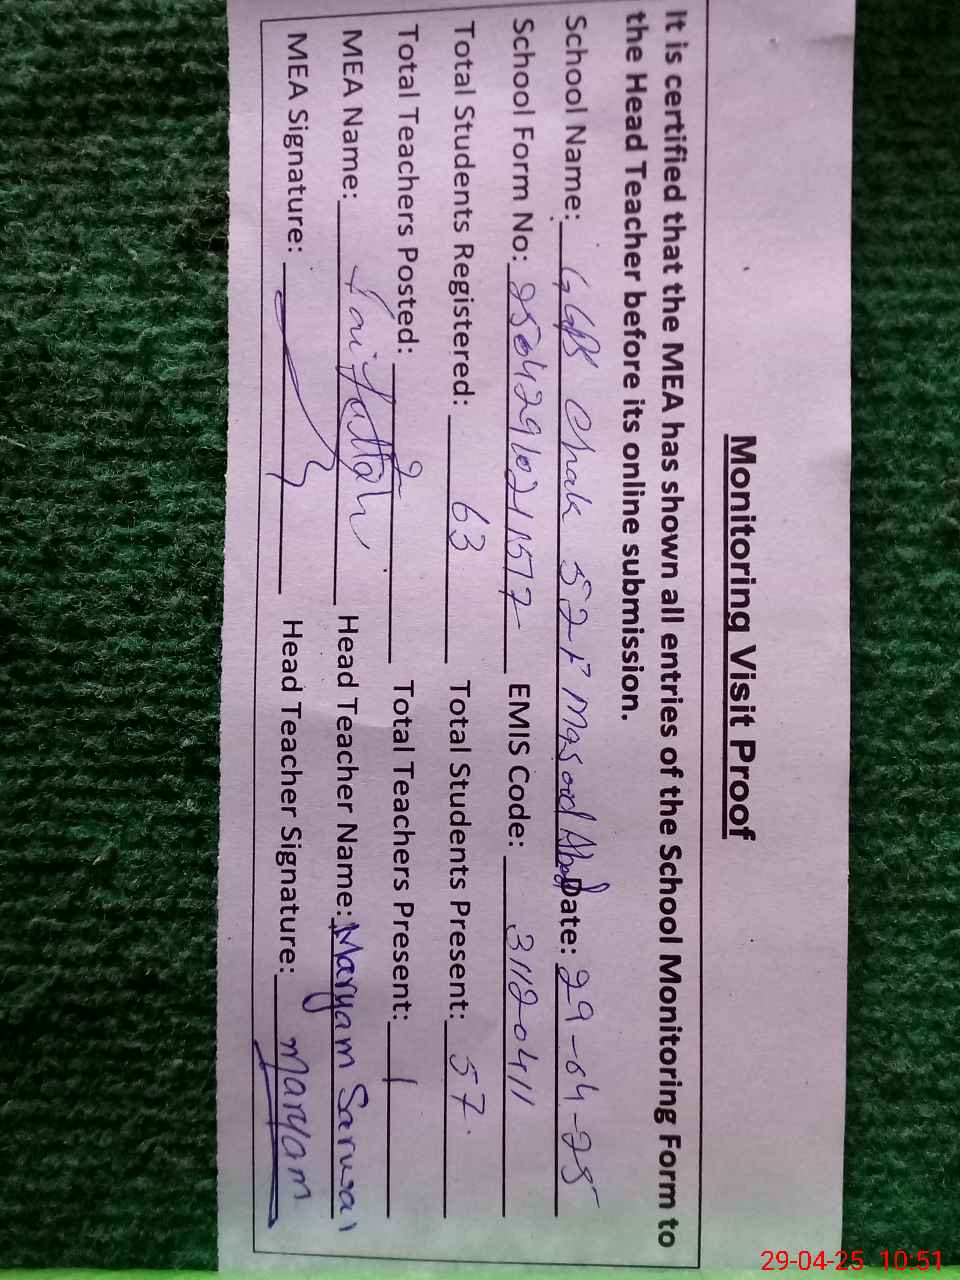 Monitoring Visit Proof
It is certified that the MEA has shown all entries of the School Monitoring Form to
the Head Teacher before its online submission.
School Name: GGPS Chak 52-P Masood Abad Date: 29-04-25
School Form No: 2504291021577 EMIS Code: 31120411
Total Students Registered: 63 Total Students Present: 57
Total Teachers Posted: 2 Total Teachers Present: 1
MEA Name: Head Teacher Name: Maryam Sarwar
MEA Signature: Head Teacher Signature: Maryam
29-04-25 10:51